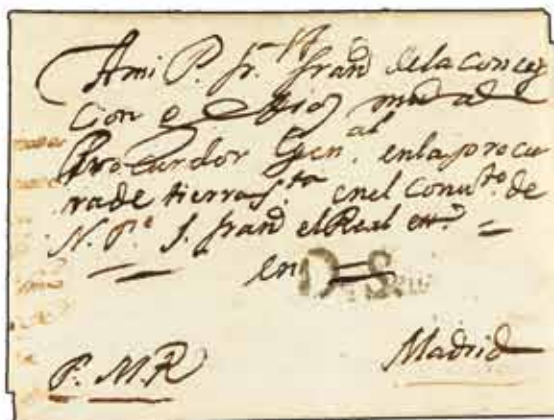 Ami P. fr. fran.co dela concep
cion Dios
Procurdor Gen.al enla procu
ra de tierra s.ta en el Conv.to de
N. P.e S. fran.co el Real
en
P. M. R Madrid